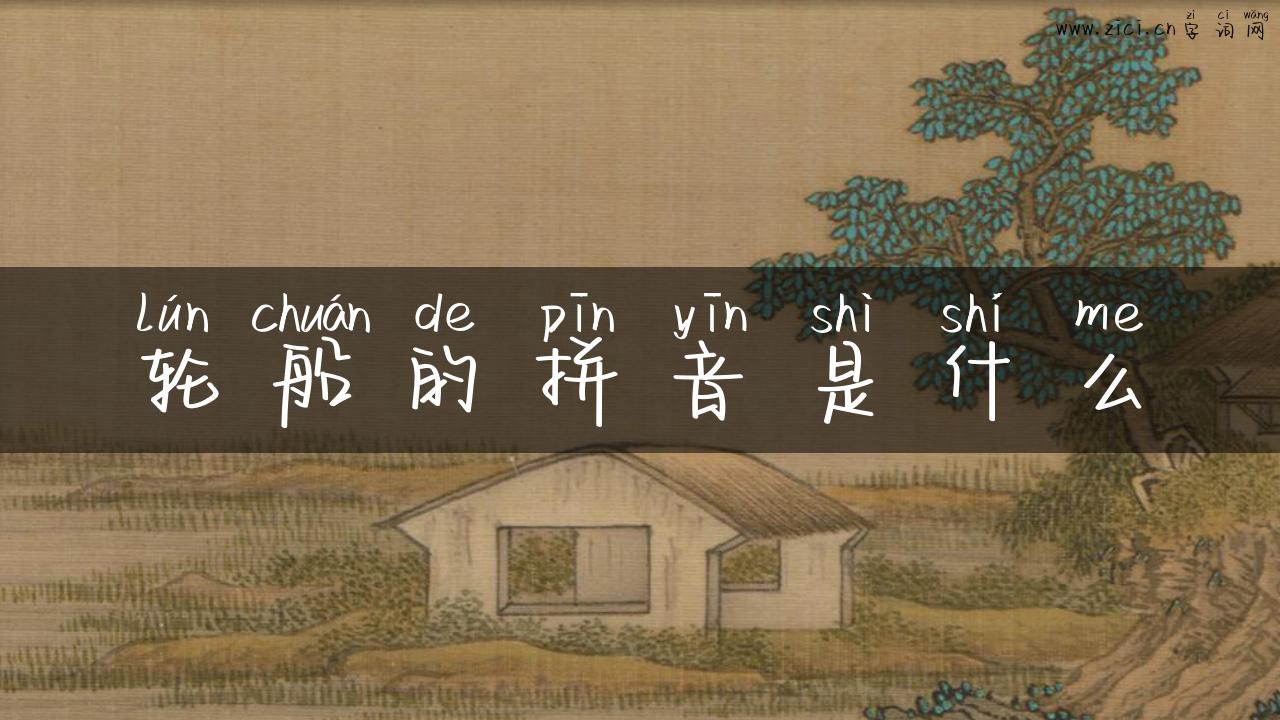 zì cí wǎng
www.zici.cn 字 词 网
lún chuán de pīn yīn shì shí me
轮 船 的 拼 音 是 什 么